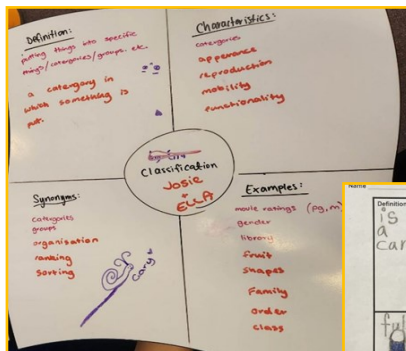 Definition:
putting things into specific
things/catergories/groups. etc.
a catergory in
which something is
put.
Characteristics:
catergories
appearance
reproduction
mobility
functionality
Classification
Josie
+
ELLA
Synonyms:
categories
groups
organisation
ranking
sorting
Gary
Examples:
movie ratings (pg, m)
gender
library
Fruit
shapes
Family
order
class
Name
Definition
is
a
car